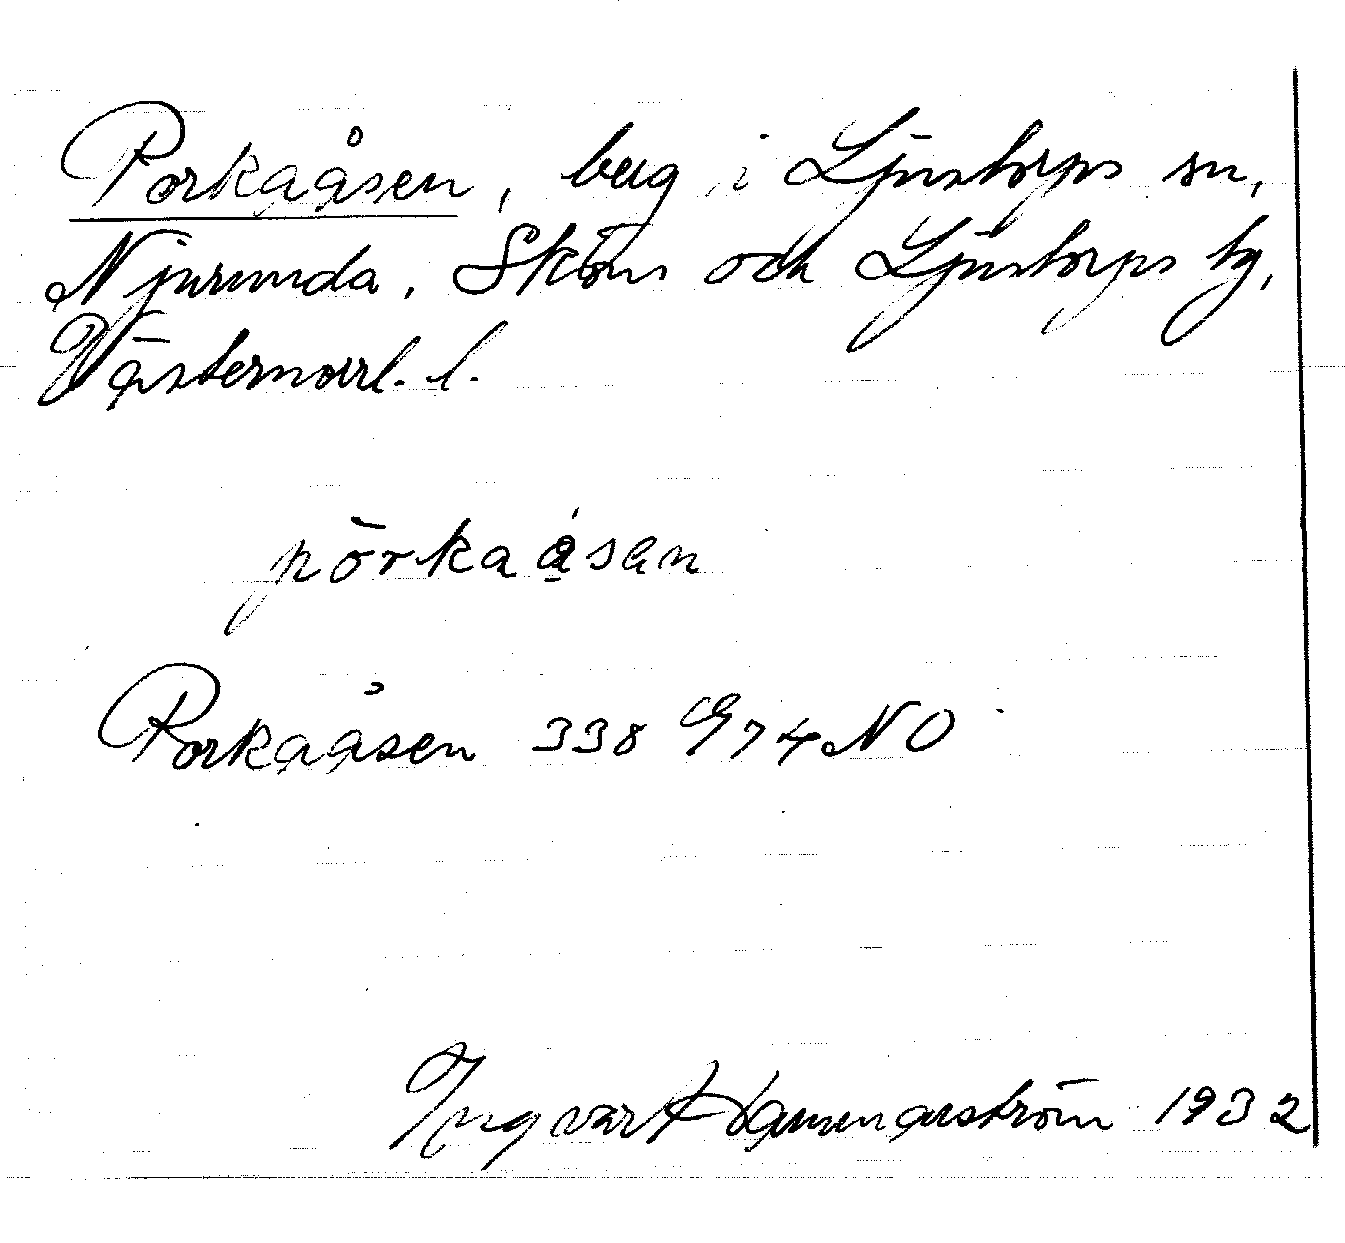 Porkaåsen, berg i Ljustorps sn,
Njurunda, Sköns och Ljustorps tg,
Västernorrl. l.
pörkaåsan
Porkaåsen 338 G74NO
Ingvar Hammarström 1932